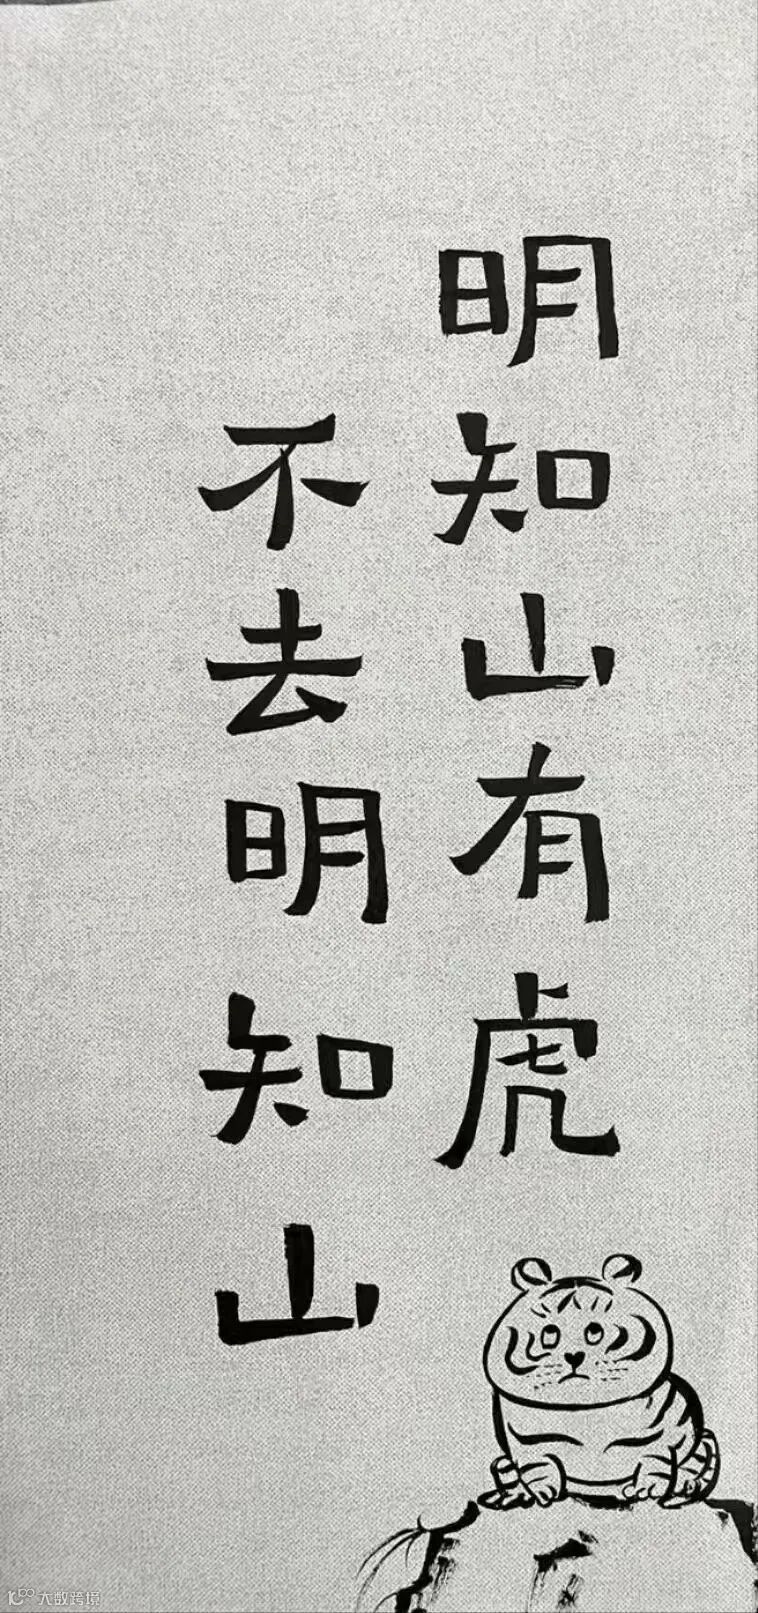 明知山有虎
不去明知山
大数跨境